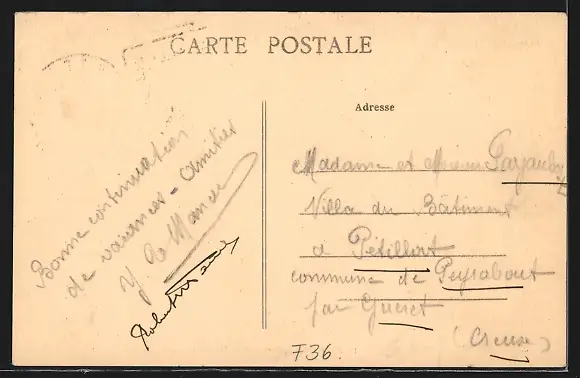 CARTE POSTALE
Adresse
Bonne continuation
de vacances - amitiés
Y
Madame et
Villa du Bâtiment
à Petillat
commune de Peyrabout
par Guéret
(Creuse)
F36.